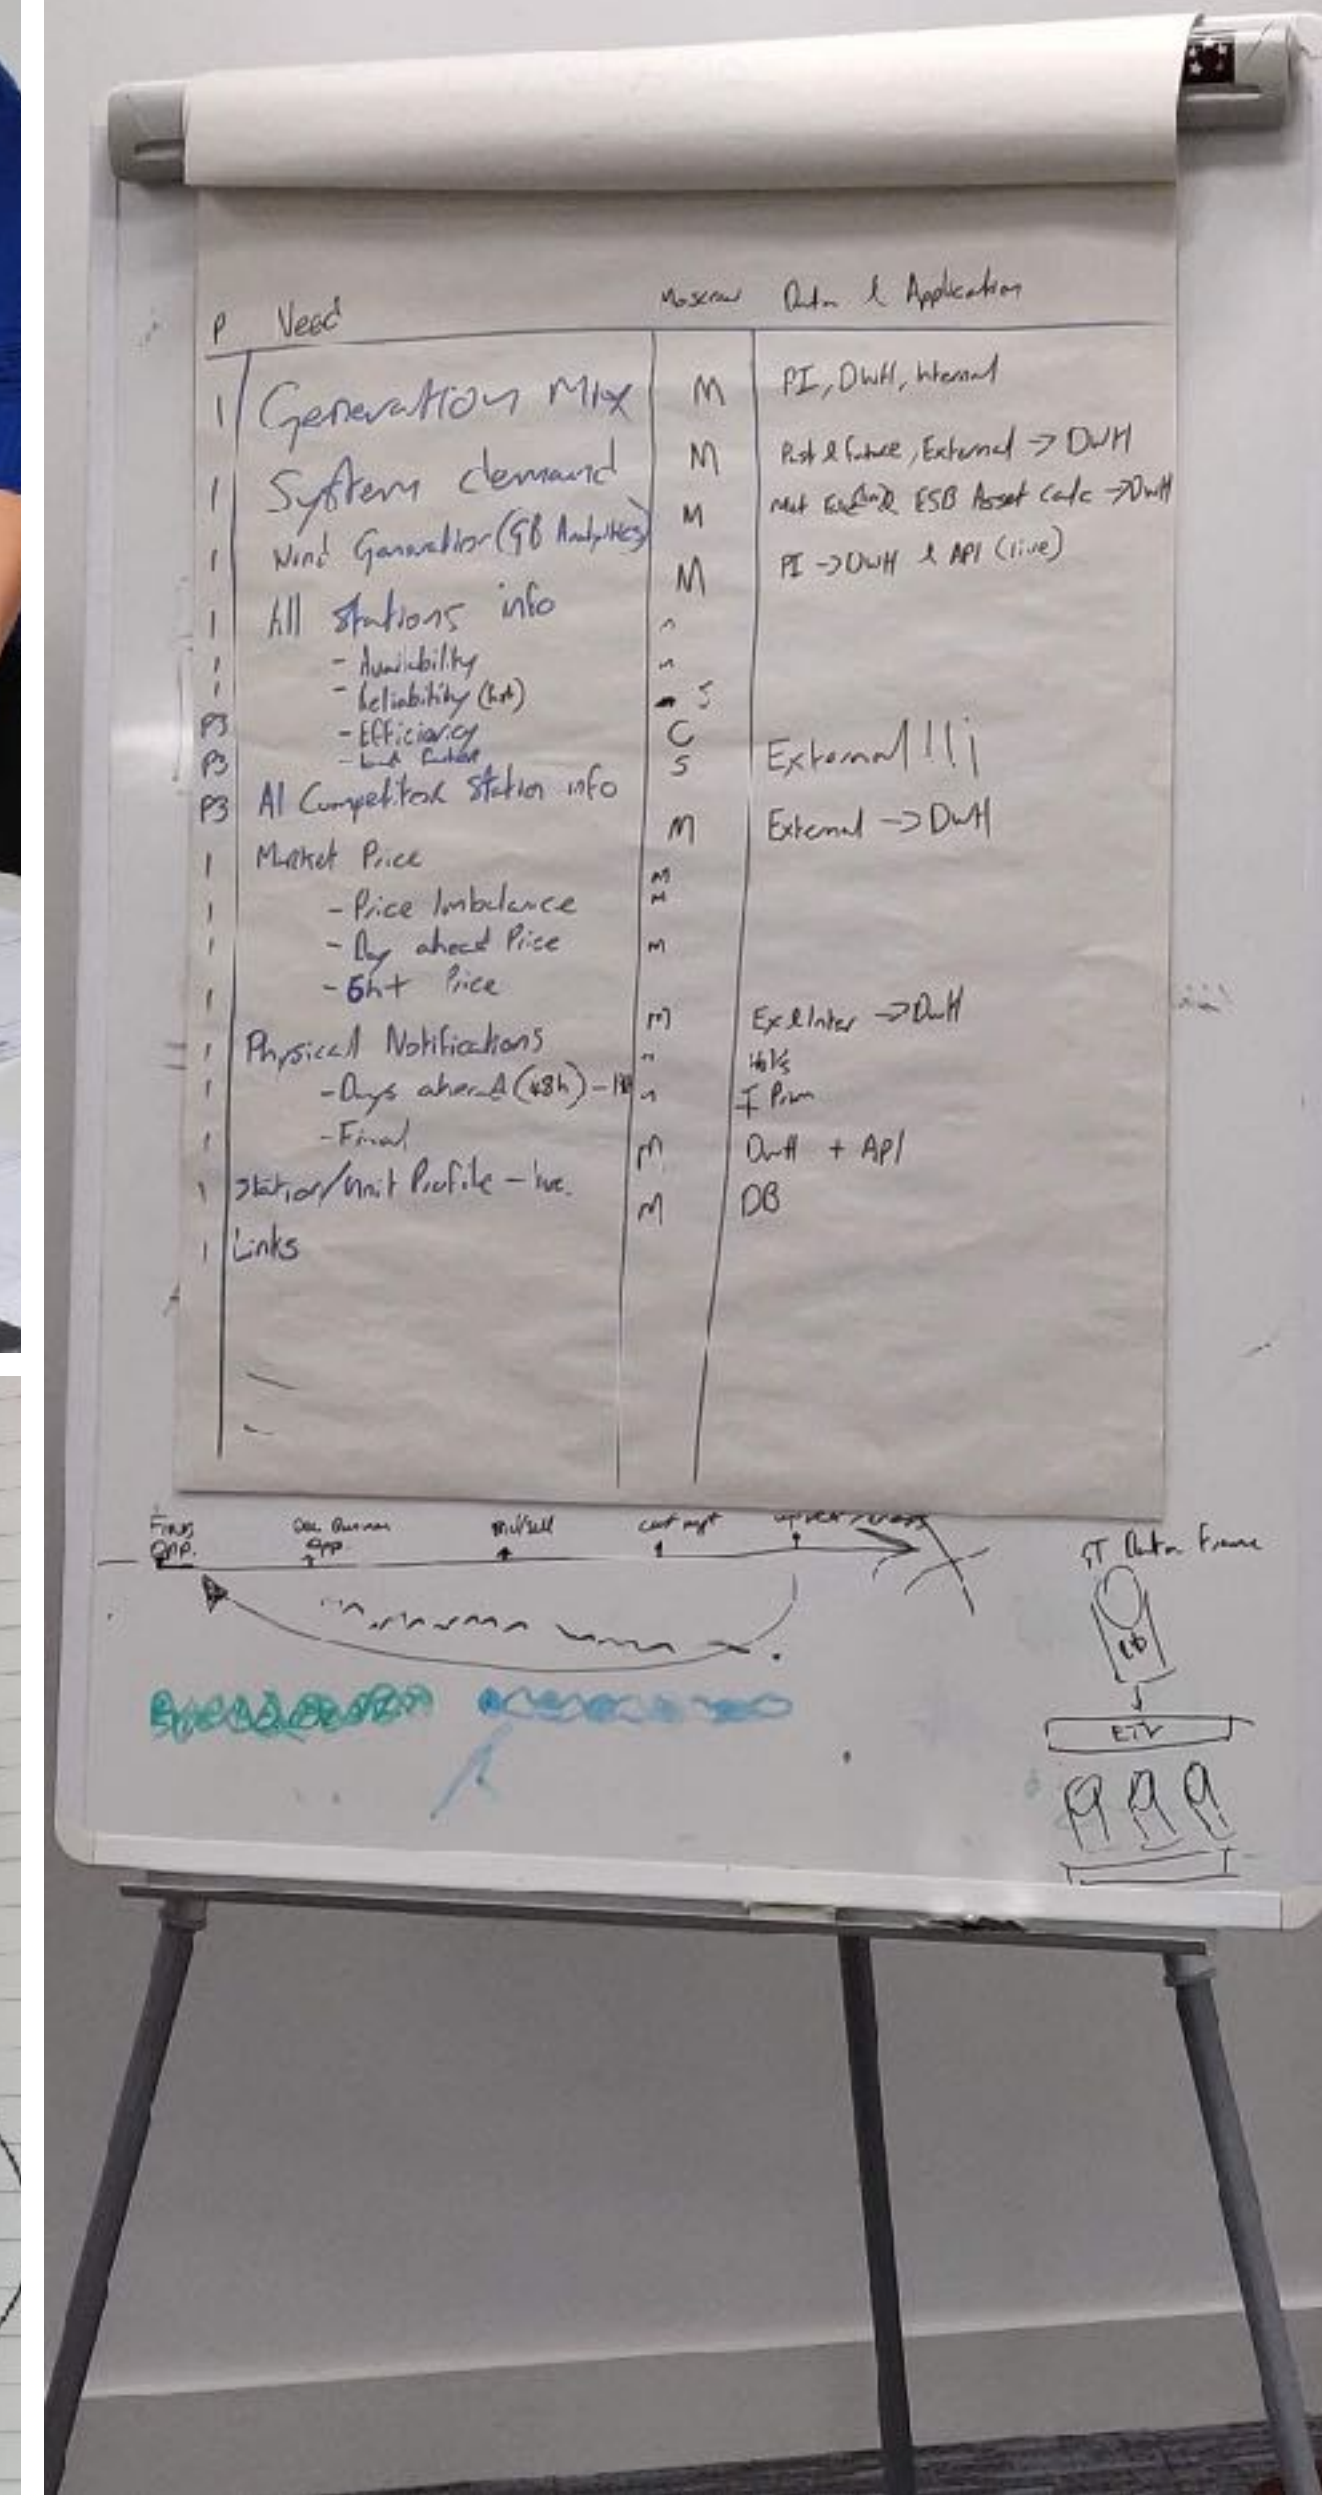 P Need Moscow Data & Application
1 Generation Mix M PI, DWH, Internal
1 System demand M Past & future, External -> DWH
1 Wind Generation (GB Analytics) M ESB Asset Calc -> DWH
1 All Stations info M PI -> DWH & API (live)
1 - Availability "
1 - Reliability "
P3 - Efficiency S
P3 - C
P3 AI Competitor Station info S External !!!
1 Market Price M External -> DWH
1 - Price Imbalance M
1 - Day ahead Price M
1 - Price M
1 Physical Notifications M Ex & Inter -> DWH
1 - Days ahead (48h) - "
1 - Final "
1 Station/Unit Profile - M DWH + API
1 Links M DB
Opp. Opp. Buy/sell
IT Data Frame
ETL